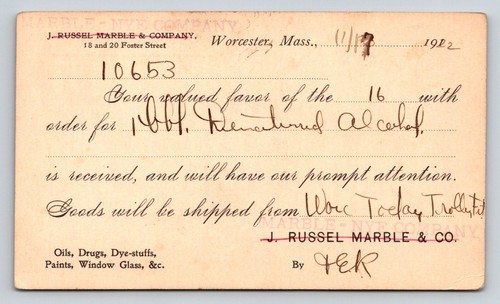 MARBLE - NYE COMPANY
J. RUSSEL MARBLE & COMPANY,
18 and 20 Foster Street
Worcester, Mass., 11/17 1912
10653
Your valued favor of the 16 with
order for 1 bbl. Denatured Alcohol.
is received, and will have our prompt attention.
Goods will be shipped from Worc Today Trolley
MARBLE - NYE COMPANY
J. RUSSEL MARBLE & CO.
Oils, Drugs, Dye-stuffs,
Paints, Window Glass, &c.
By